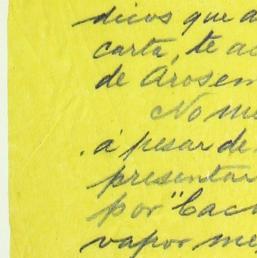 dicos que a
carta, te ac
de Arosem
No me
á pesar de
presentar
por "Cac
vapor me